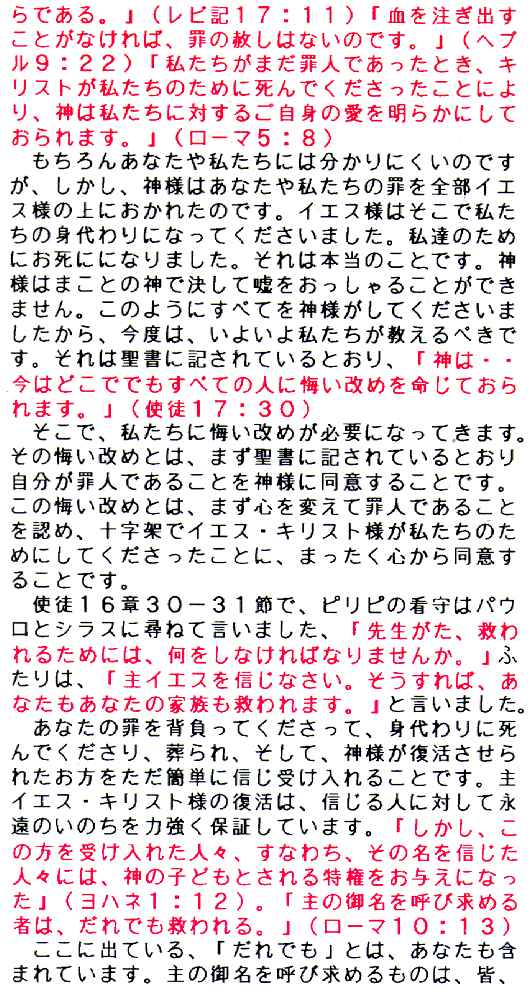 らである。」（レビ記１７：１１）「血を注ぎ出す
ことがなければ、罪の赦しはないのです。」（ヘブ
ル９：２２）「私たちがまだ罪人であったとき、キ
リストが私たちのために死んでくださったことによ
り、神は私たちに対するご自身の愛を明らかにして
おられます。」（ローマ５：８）
もちろんあなたや私たちには分かりにくいのです
が、しかし、神様はあなたや私たちの罪を全部イエ
ス様の上におかれたのです。イエス様はそこで私た
ちの身代わりになってくださいました。私達のため
にお死にになりました。それは本当のことです。神
様はまことの神で決して嘘をおっしゃることができ
ません。このようにすべてを神様がしてくださいま
したから、今度は、いよいよ私たちが教えるべきで
す。それは聖書に記されているとおり、「神は・・
今はどこででもすべての人に悔い改めを命じておら
れます。」（使徒１７：３０）
そこで、私たちに悔い改めが必要になってきます。
その悔い改めとは、まず聖書に記されているとおり
自分が罪人であることを神様に同意することです。
この悔い改めとは、まず心を変えて罪人であること
を認め、十字架でイエス・キリスト様が私たちのた
めにしてくださったことに、まったく心から同意す
ることです。
使徒１６章３０－３１節で、ピリピの看守はパウ
ロとシラスに尋ねて言いました、「先生がた、救わ
れるためには、何をしなければなりませんか。」ふ
たりは、「主イエスを信じなさい。そうすれば、あ
なたもあなたの家族も救われます。」と言いました。
あなたの罪を背負ってくださって、身代わりに死
んでくださり、葬られ、そして、神様が復活させら
れたお方をただ簡単に信じ受け入れることです。主
イエス・キリスト様の復活は、信じる人に対して永
遠のいのちを力強く保証しています。「しかし、こ
の方を受け入れた人々、すなわち、その名を信じた
人々には、神の子どもとされる特権をお与えになっ
た」（ヨハネ１：１２）。「主の御名を呼び求める
者は、だれでも救われる。」（ローマ１０：１３）
ここに出ている、「だれでも」とは、あなたも含
まれています。主の御名を呼び求めるものは、皆、